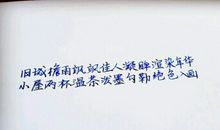 旧城檐雨飒飒佳人凝眸渲染年华
小屋两杯温茶泼墨勾勒绝色入画